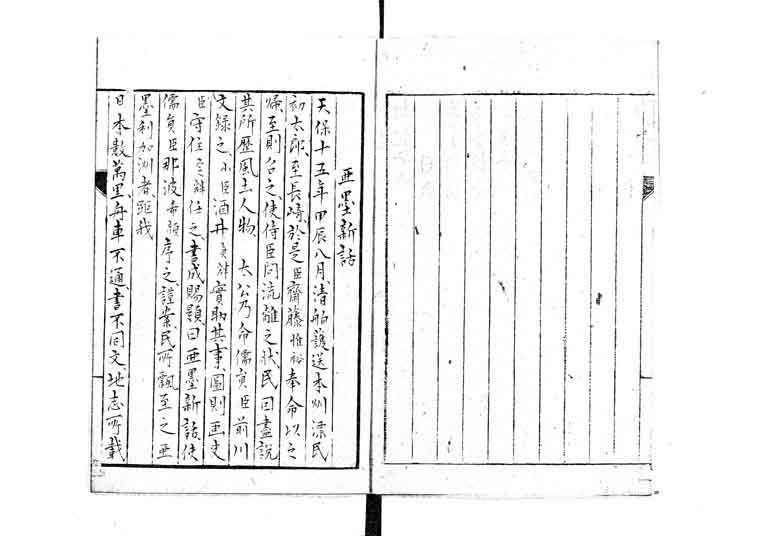 亜墨新話
天保十五年甲辰八月清舶護送本州漂民
初太郎至長崎於是臣齋藤惟裕奉命以之
帰至則召之使侍臣問流離之状民曰盡説
其所歴風土人物 太公乃命儒員臣前川
文録之小臣酒井 實助其事圖則画史
臣守住 任之書成賜題曰亜墨新話使
儒員臣那波希顔序之謹案民所飄至之亜
墨利加洲者距我
日本数萬里舟車不通書不同文地志所載